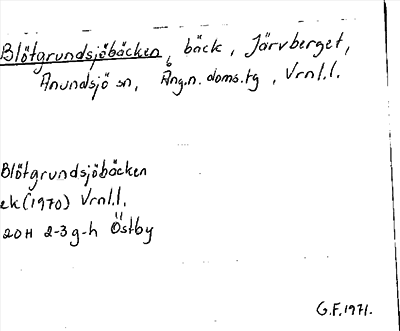 Blötgrundsjöbäcken, bäck, Järvberget,
Anundsjö sn, Ång.n. doms.tg, Vrnl.l.
Blötgrundsjöbäcken
ek(1970) Vrnl.l.
20H 2-3g-h Östby
G.F.1971.